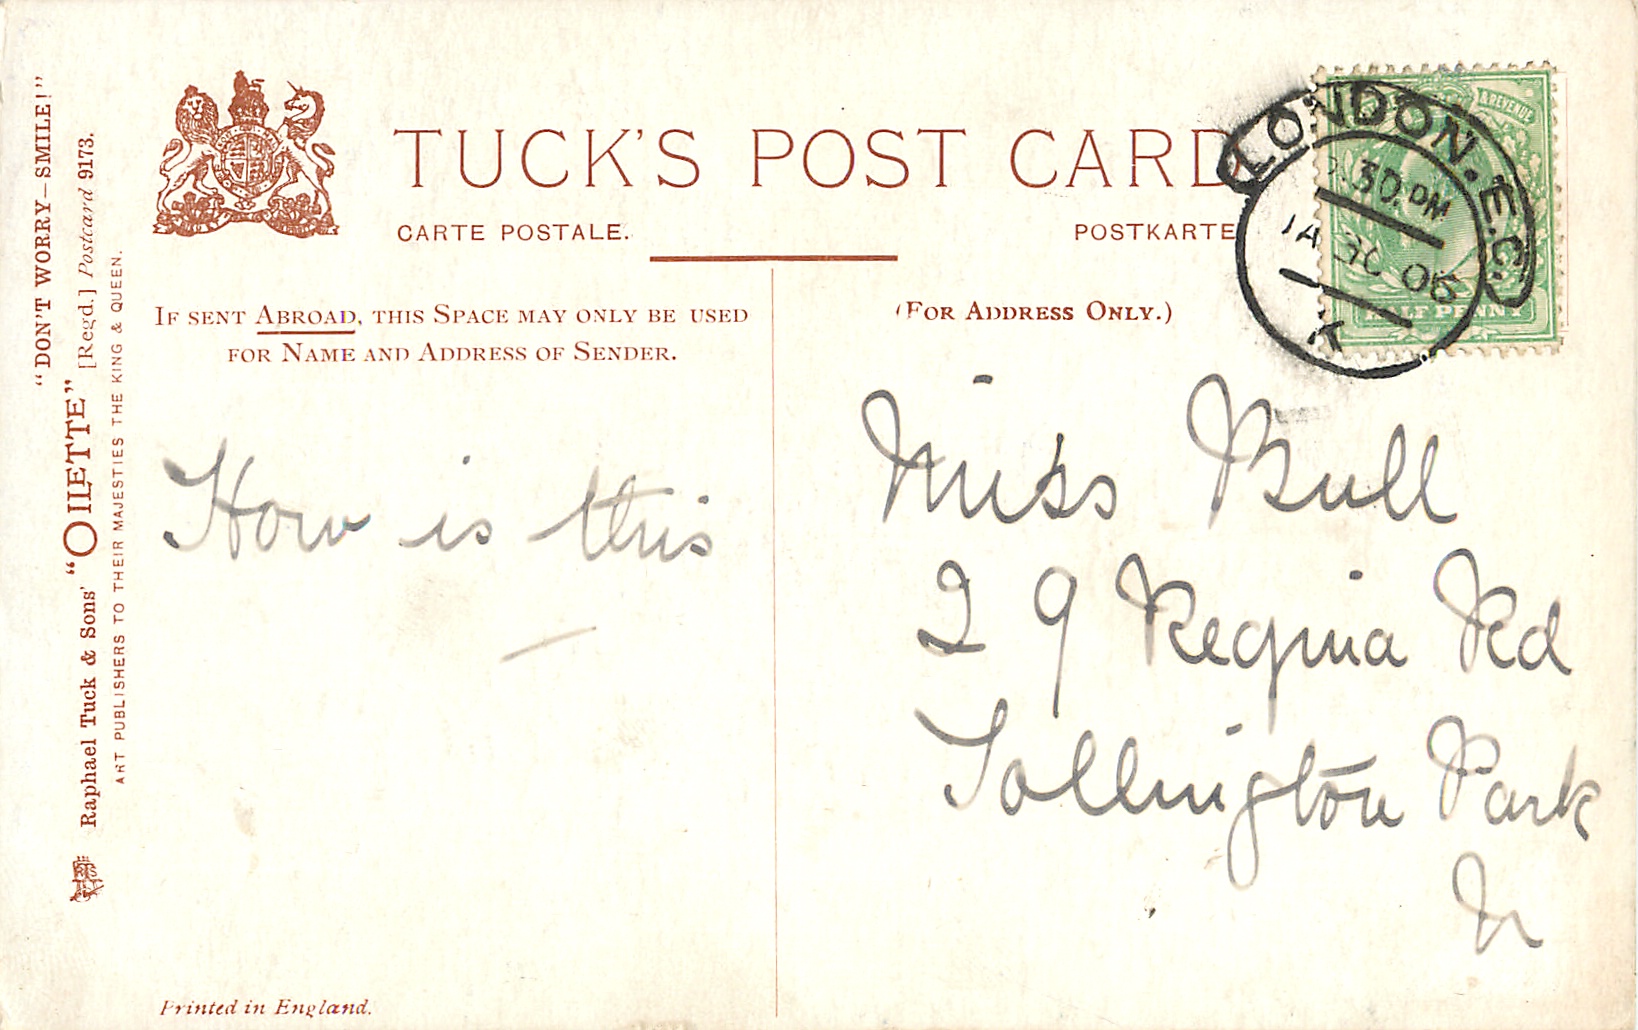 "DON'T WORRY—SMILE!"
Raphael Tuck & Sons' "OILETTE" [Regd.] Postcard 9173.
ART PUBLISHERS TO THEIR MAJESTIES THE KING & QUEEN.
TUCK'S POST CARD
CARTE POSTALE.
POSTKARTE
IF SENT ABROAD, THIS SPACE MAY ONLY BE USED
FOR NAME AND ADDRESS OF SENDER.
(FOR ADDRESS ONLY.)
& REVENUE
HALF PENNY
LONDON. E.C.
.30.PM
JA 30 06
How is this
Miss Bull
29 Regina Rd
Tollington Park
N
Printed in England.